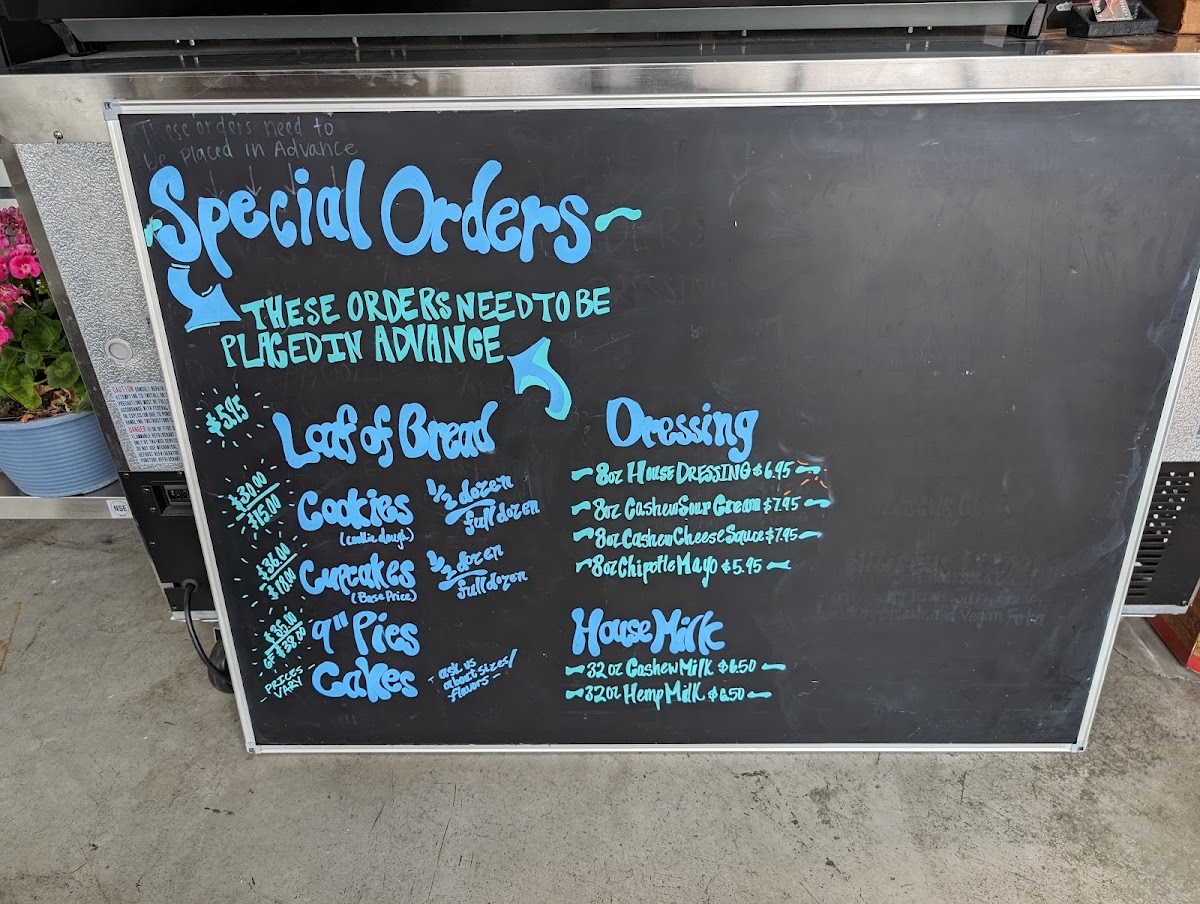 These orders need to
be placed in Advance
Special Orders
THESE ORDERS NEED TO BE
PLACED IN ADVANCE
$5.95
Loaf of Bread
$30.00
$15.00
Cookies
(cookie dough)
1/2 dozen
full dozen
$36.00
$18.00
Cupcakes
(Base Price)
1/2 dozen
full dozen
$35.00
GF $38.00
9" Pies
PRICES
VARY
Cakes
ask us
about sizes/
flavors
Dressing
8oz House DRESSING $6.95
8oz Cashew Sour Cream $7.95
8oz Cashew Cheese Sauce $7.95
8oz Chipotle Mayo $5.95
House Milk
32oz Cashew Milk $6.50
32oz Hemp Milk $6.50
CAUTION
DANGER
NSF